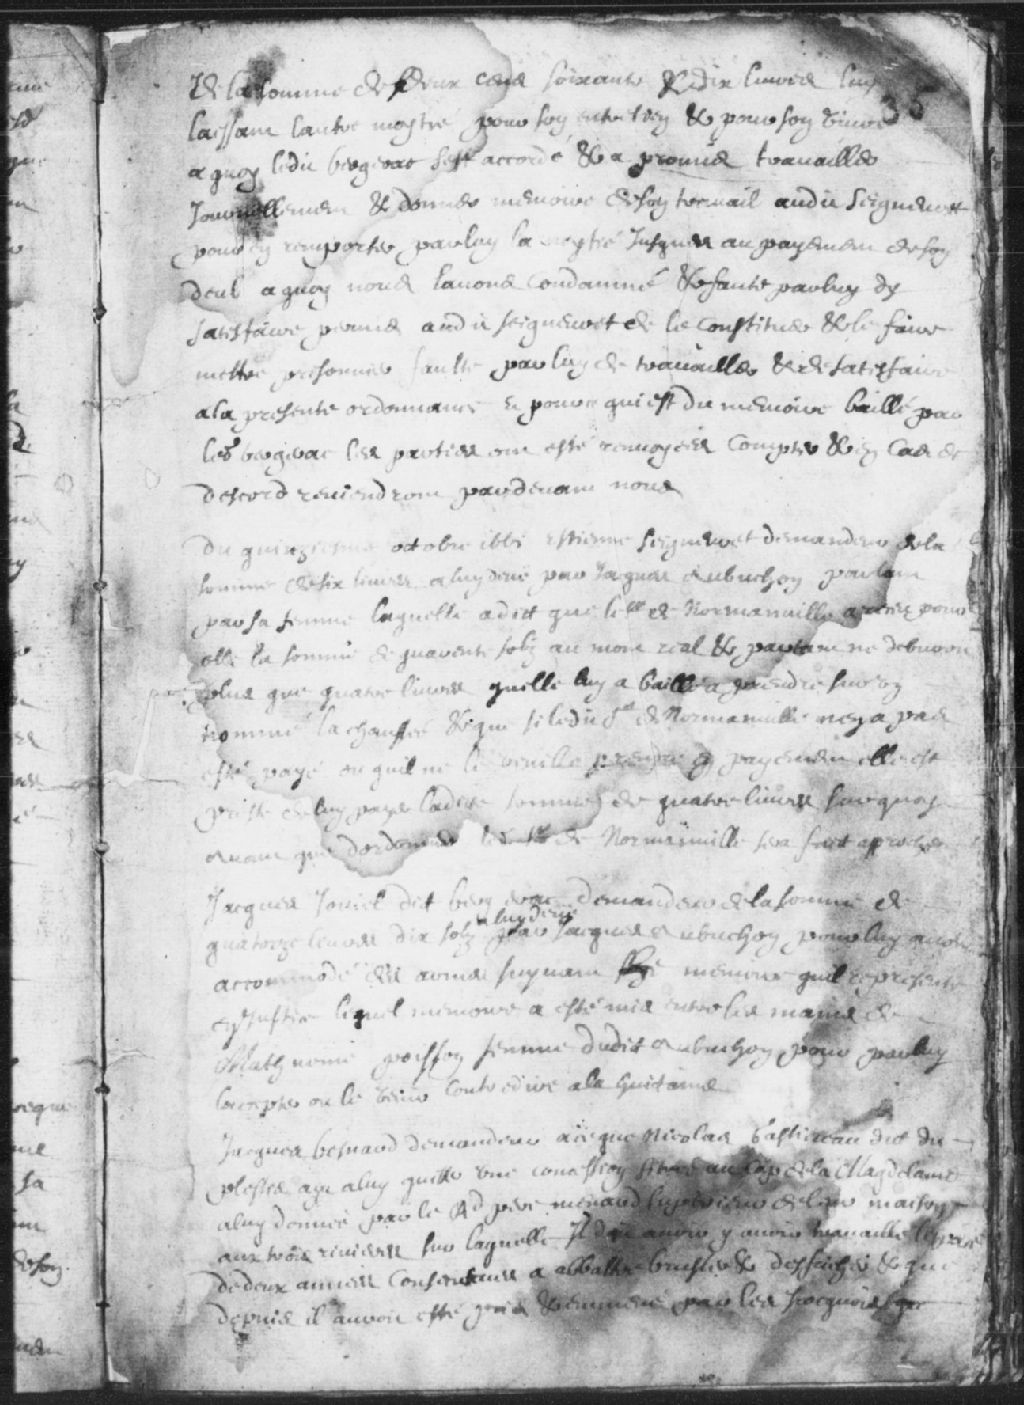 35
De la somme de deux cens soixante & dix livres luy
laissant lautre moytié pour soy entretien & pour soy vivre
a quoy ledit bergerac sest accordé & a promis travailler
Journellement & donner memoire de soy travail audit Seigneuret
pour en remporter par luy la moytié Jusques au payement de soy
deub a quoy nous lavons Condamné & faute par luy dy
satisfaire permis audit seigneuret de le constituer & le faire
mettre prisonnier faulte par luy de travailler & de satisfaire
a la presente ordonnance Et pour ce qui est du memoire baillé par
led bergerac les parties ont esté renvoyees Compter & en Cas de
descord reviendront pardevant nous
Du quinziesme octobre 1661 Estienne seigneuret demandeur de la
somme de six livres a luy deue par Jacques aubuchon parlant
par sa femme laquelle a dict que le sr de Normanville a receu pour
elle la somme de quarente solz au mont real & partant ne debvoir
plus que quatre livres quelle luy a baillé a prendre sur un
nommé la chauffée & que si ledit sr de Normanville nen a pas
esté payé ou quil ne le veuille prendre en payement elle est
preste de luy payer ladite somme de quatre livres surquoy
avant que dordonner ledit sr de Normanville sera faict aprocher
Jacques Joviel dit bergerac demandeur de la somme de
quatorze livres dix solz a luy deue par Jacques aubuchon pour luy avoir
accommodé des armes suyvant le memoire quil represente
en Justice lequel memoire a esté mis entre les mains de
Mathurine poisson femme dudit aubuchon pour par luy
laccepter ou le venir Contredire a la huictaine
Jacques besnard demandeur a ce que Nicolas Gastineau dit du
plessis aye a luy quitter une concession sittuée au Cap de la Magdelaine
a luy donnée par le Rd pere menard superieur de leur maison
aux trois rivieres sur laquelle Il dit avoir y avoir travaillé lespace
de deux annees Consecutives a abbattre brusler & deffricher & que
depuis il auroit esté pris & emmené par les Irocquois que